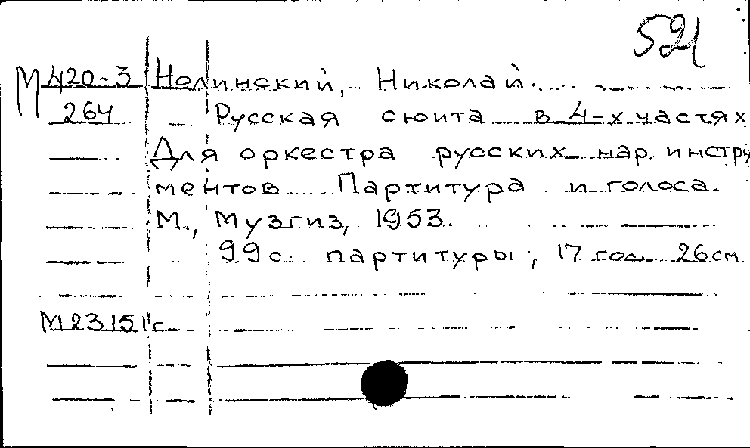 521
М 420-3 Нолинский, Николай.
264 Русская сюита в 4-х частях
Для оркестра русских нар. инстру
ментов. Партитура и голоса.
М., Музгиз, 1953.
99с партитуры; 17 гол. 26см
М23151с